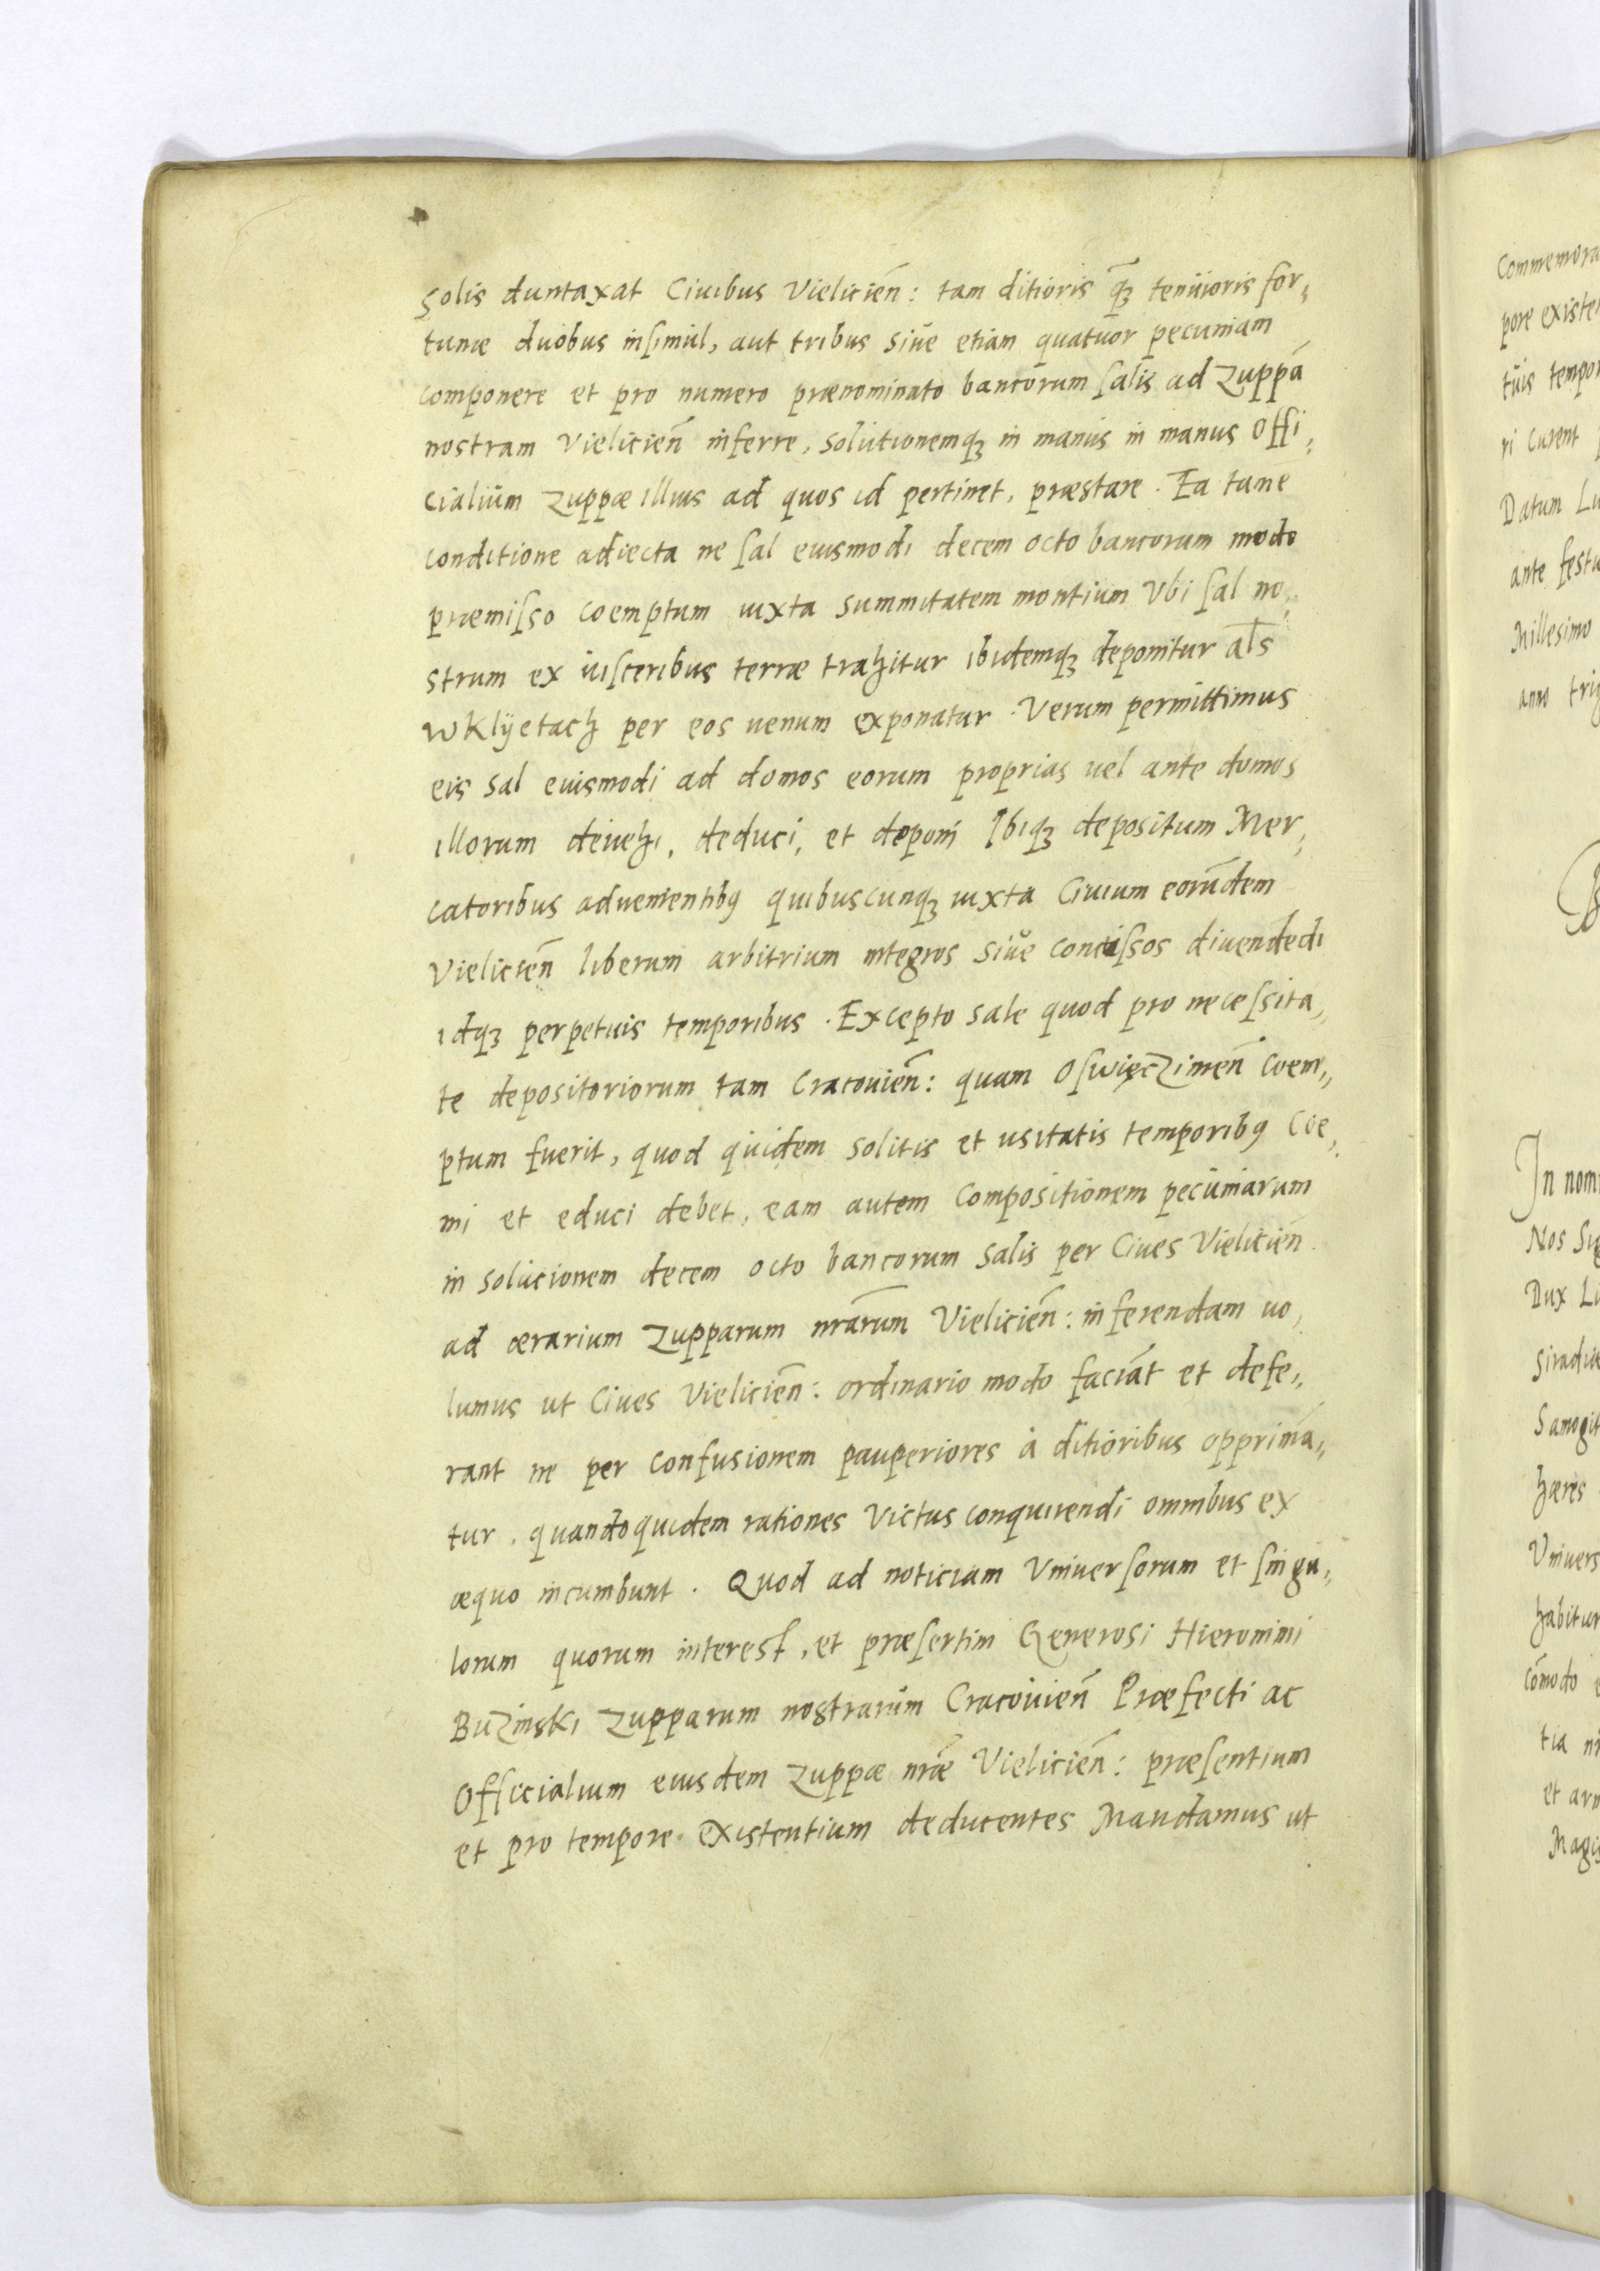 Solis duntaxat Ciuibus Vielicień: tam ditioris q̃ꝫ tenuioris for,
tunæ duobus insimul, aut tribus siue etiam quatuor pecuniam
componere et pro numero prænominato bancorum salis ad Zuppā
nostram Vielicień inferre, solutionemqꝫ in manus in manus Offi,
cialium Zuppæ illius ad quos id pertinet, præstare. Ea tune
conditione adiecta ne sal euismodi decem octo bancorum modo
præmisso coemptum iuxta summitatem montium Vbi sal no,
strum ex uisceribus terræ trahitur ibidemqꝫ deponitur als
wklÿetach per eos uenum exponatur. Verum permittimus
eis sal euismodi ad domos eorum proprias uel ante domos
illorum deuehi, deduci, et deponi Ibiqꝫ depositum Mer,
catoribus aduenientibꝯ quibuscunqꝫ iuxta Ciuium eorūdem
Vielicień liberum arbitrium integros siue concissos diuendedi
idqꝫ perpetuis temporibus. Excepto sale quod pro necessita,,
te depositoriorum tam Cracouień: quam Oswięczimeń coem,,
ptum fuerit, quod quidem solitis et usitatis temporibꝯ coe,
mi et educi debet, eam autem compositionem pecuniarum
in solucionem decem octo bancorum salis per Ciues Vielicień
ad ærarium Zupparum nrārum Vielicień: inferendam uo,
lumus ut Ciues Vielicień: ordinario modo faciāt et defe,,
rant ne per confusionem pauperiores à ditioribus opprimā,,
tur. quandoquidem rationes victus conquirendi omnibus ex
æquo incumbunt. Quod ad noticiam Vniuersorum et singu,,
lorum quorum interest, et præsertim Generosi Hieronimi
Buzinski Zupparum nostrarum Cracouień Præfecti ac
Officialium eiusdem Zuppæ nræ̃ Vielicień: præsentium
et pro tempore existentium deducentes Mandamus ut
Commemora
pore existen
tuis tempor
ri curent
Datum Lu
ante festu
Millesimo
anno trig
In nomi
Nos Sig
Dux Li
Siradiæ
Samogit
hæres
Univers
habitur
cōmodo
tia
et
Magis